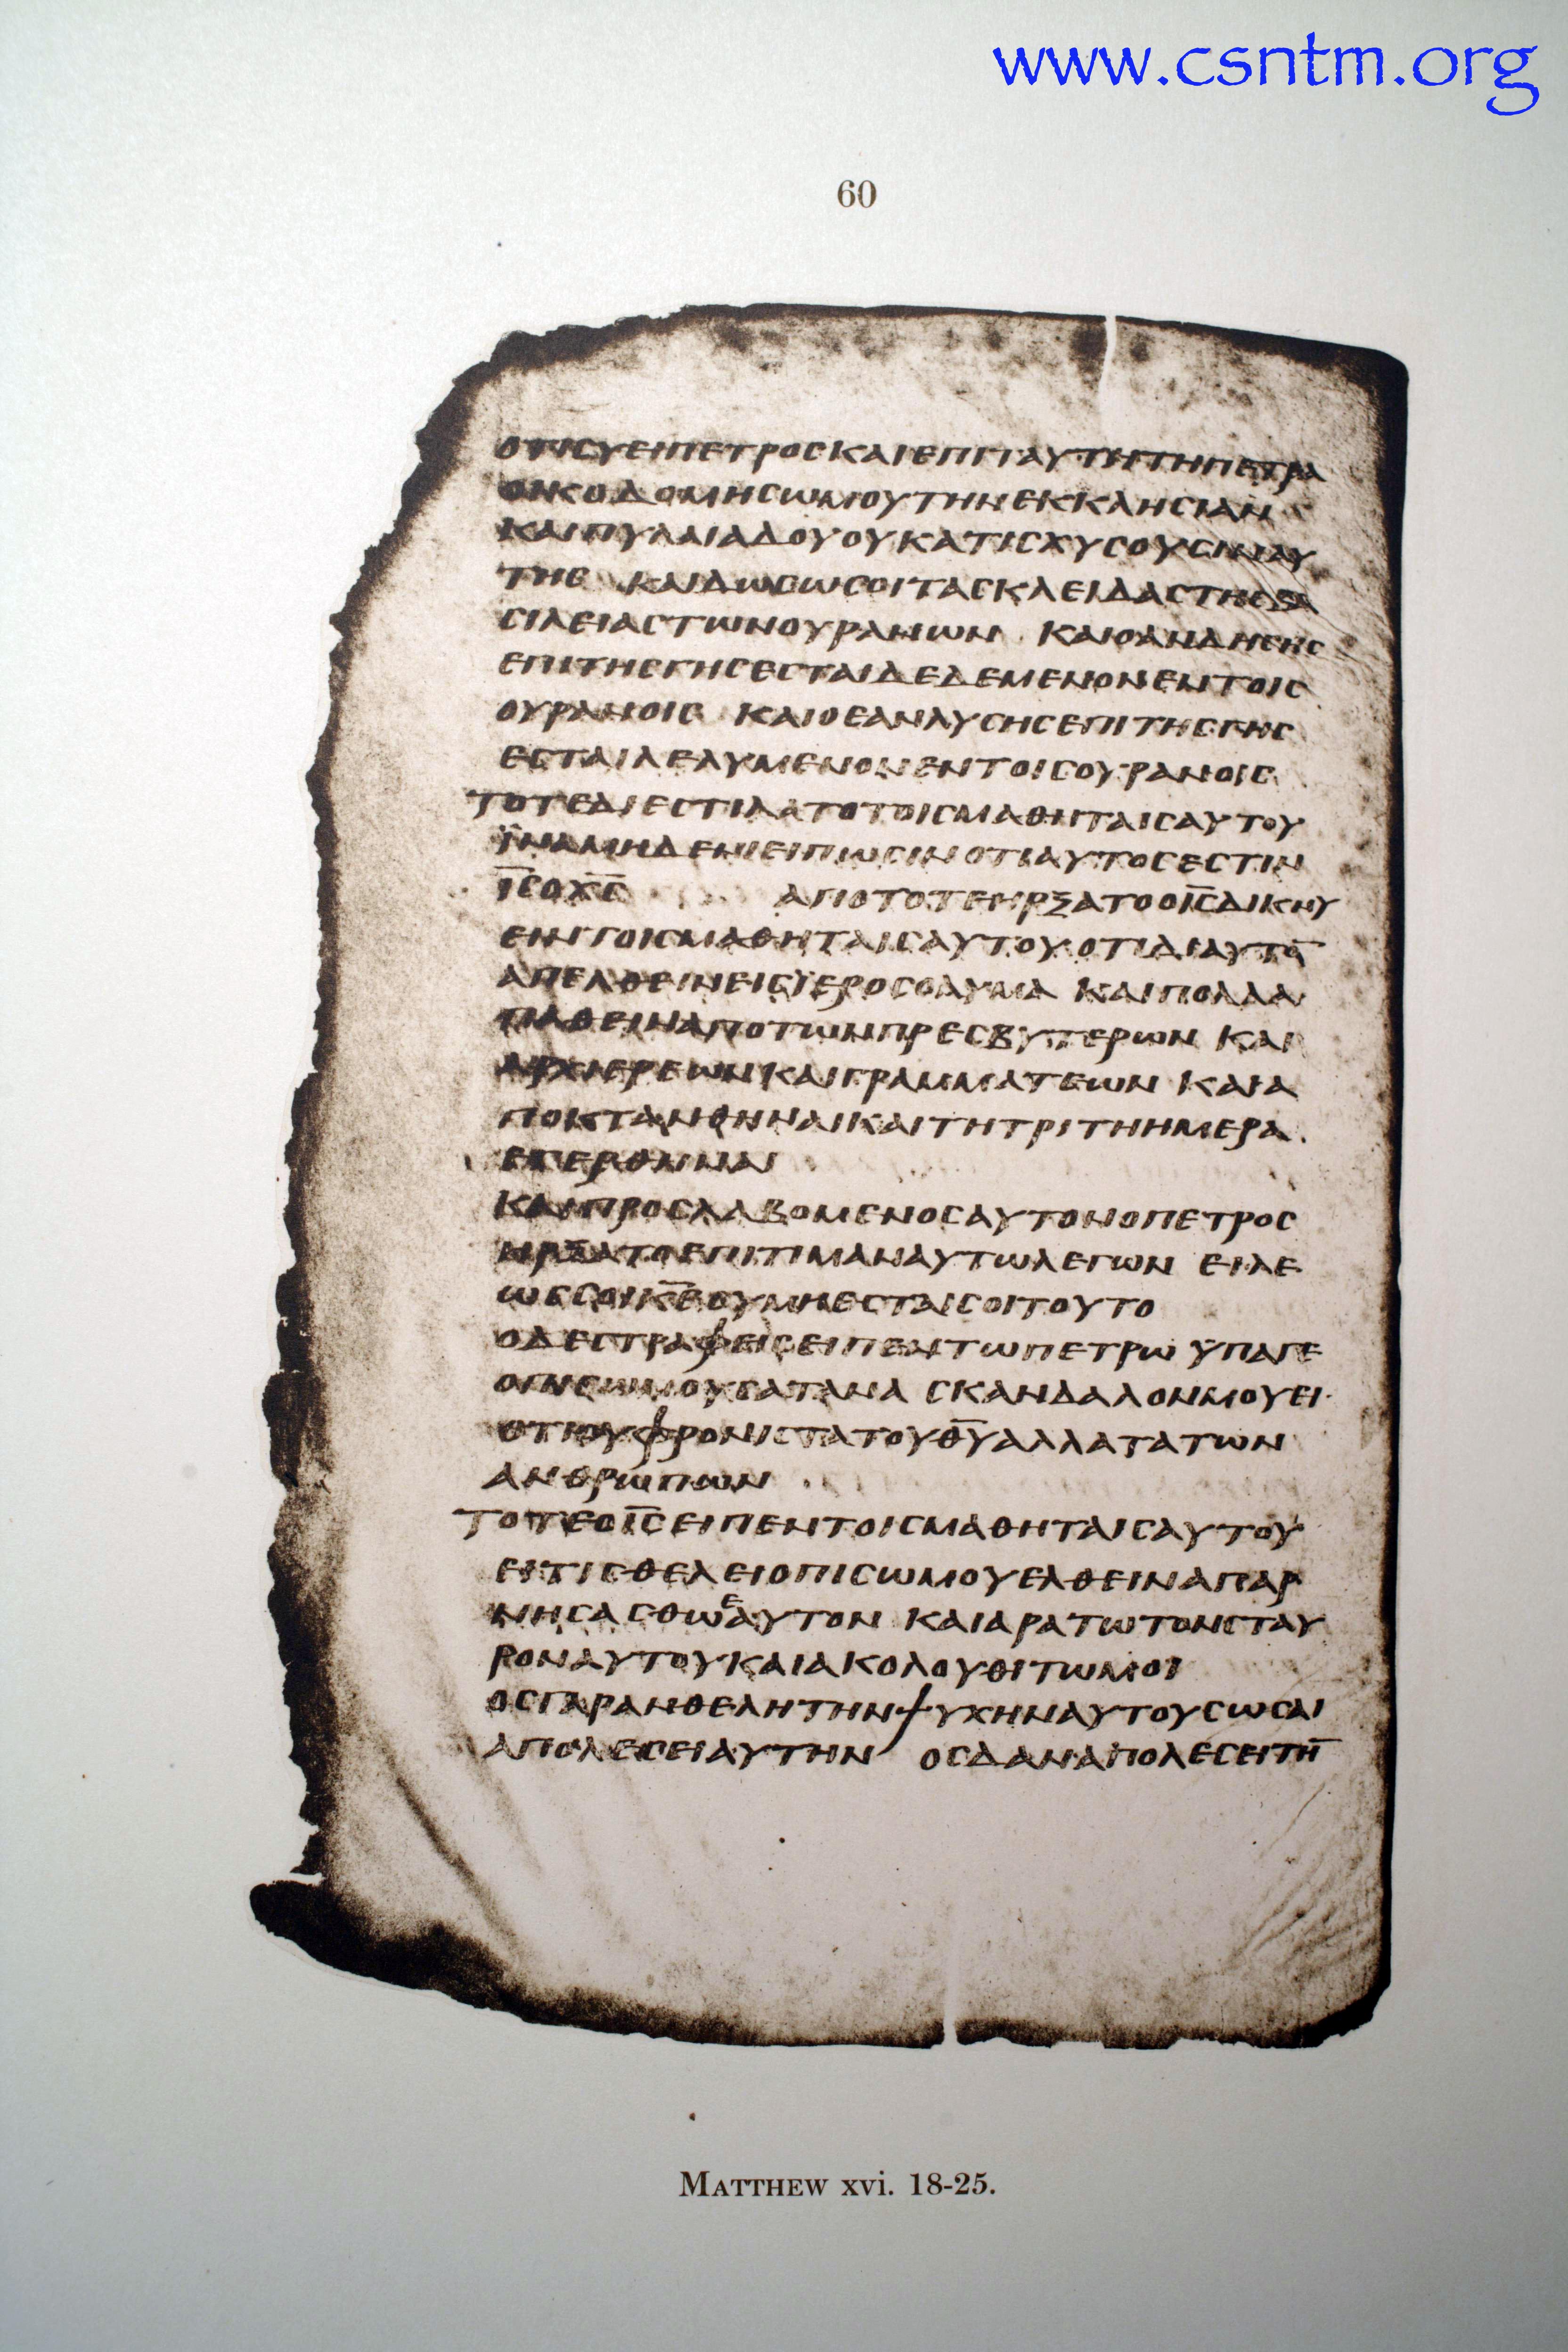 www.csntm.org
60
ΟΤΙCΥΕΙΠΕΤΡΟCΚΑΙΕΠΙΤΑΥΤΗΤΗΠΕΤΡΑ
ΟΙΚΟΔΟΜΗCΩΜΟΥΤΗΝΕΚΚΛΗCΙΑΝ
ΚΑΙΠΥΛΑΙΑΔΟΥΟΥΚΑΤΙCΧΥCΟΥCΙΝΑΥ
ΤΗC ΚΑΙΔΩCΩCΟΙΤΑCΚΛΕΙΔΑCΤΗCΒΑ
CΙΛΕΙΑCΤΩΝΟΥΡΑΝΩΝ ΚΑΙΟΑΝΔΗCΗC
ΕΠΙΤΗCΓΗCΕCΤΑΙΔΕΔΕΜΕΝΟΝΕΝΤΟΙC
ΟΥΡΑΝΟΙC ΚΑΙΟΕΑΝΛΥCΗCΕΠΙΤΗCΓΗC
ΕCΤΑΙΛΕΛΥΜΕΝΟΝΕΝΤΟΙCΟΥΡΑΝΟΙC
ΤΟΤΕΔΙΕCΤΙΛΑΤΟΤΟΙCΜΑΘΗΤΑΙCΑΥΤΟΥ
ΪΝΑΜΗΔΕΝΙΕΙΠΩCΙΝΟΤΙΑΥΤΟCΕCΤΙΝ
Ι̅C̅ΟΧ̅C̅ ΑΠΟΤΟΤΕΗΡΞΑΤΟΟΙ̅C̅ΔΙΚΝΥ
ΕΙΝΤΟΙCΜΑΘΗΤΑΙCΑΥΤΟΥΟΤΙΔΙΑΥΤΟ̅
ΑΠΕΛΘΕΙΝΕΙCΪΕΡΟCΟΛΥΜΑ ΚΑΙΠΟΛΛΑ
ΠΑΘΕΙΝΑΠΟΤΩΝΠΡΕCΒΥΤΕΡΩΝ ΚΑΙ
ΑΡΧΙΕΡΕΩΝΚΑΙΓΡΑΜΜΑΤΕΩΝ ΚΑΙΑ
ΠΟΚΤΑΝΘΗΝΑΙΚΑΙΤΗΤΡΙΤΗΗΜΕΡΑ
ΕΓΕΡΘΗΝΑΙ
ΚΑΙΠΡΟCΛΑΒΟΜΕΝΟCΑΥΤΟΝΟΠΕΤΡΟC
ΗΡΞΑΤΟΕΠΙΤΙΜΑΝΑΥΤΩΛΕΓΩΝ ΕΙΛΕ
ΩCCΟΙΚ̅Ε̅ΟΥΜΗΕCΤΑΙCΟΙΤΟΥΤΟ
ΟΔΕCΤΡΑΦΕΙCΕΙΠΕΝΤΩΠΕΤΡΩ ΫΠΑΓΕ
ΟΠΙCΩΜΟΥCΑΤΑΝΑ CΚΑΝΔΑΛΟΝΜΟΥΕΙ
ΟΤΙΟΥΦΡΟΝΙCΤΑΤΟΥΘ̅Υ̅ΑΛΛΑΤΑΤΩΝ
ΑΝΘΡΩΠΩΝ
ΤΟΤΕΟΙ̅C̅ΕΙΠΕΝΤΟΙCΜΑΘΗΤΑΙCΑΥΤΟΥ
ΕΙΤΙCΘΕΛΕΙΟΠΙCΩΜΟΥΕΛΘΕΙΝΑΠΑΡ
ΝΗCΑCΘΩΕΑΥΤΟΝ ΚΑΙΑΡΑΤΩΤΟΝCΤΑΥ
ΡΟΝΑΥΤΟΥΚΑΙΑΚΟΛΟΥΘΙΤΩΜΟΙ
ΟCΓΑΡΑΝΘΕΛΗΤΗΝΨΥΧΗΝΑΥΤΟΥCΩCΑΙ
ΑΠΟΛΕCΕΙΑΥΤΗΝ ΟCΔΑΝΑΠΟΛΕCΕΙΤΗ̅
MATTHEW xvi. 18-25.